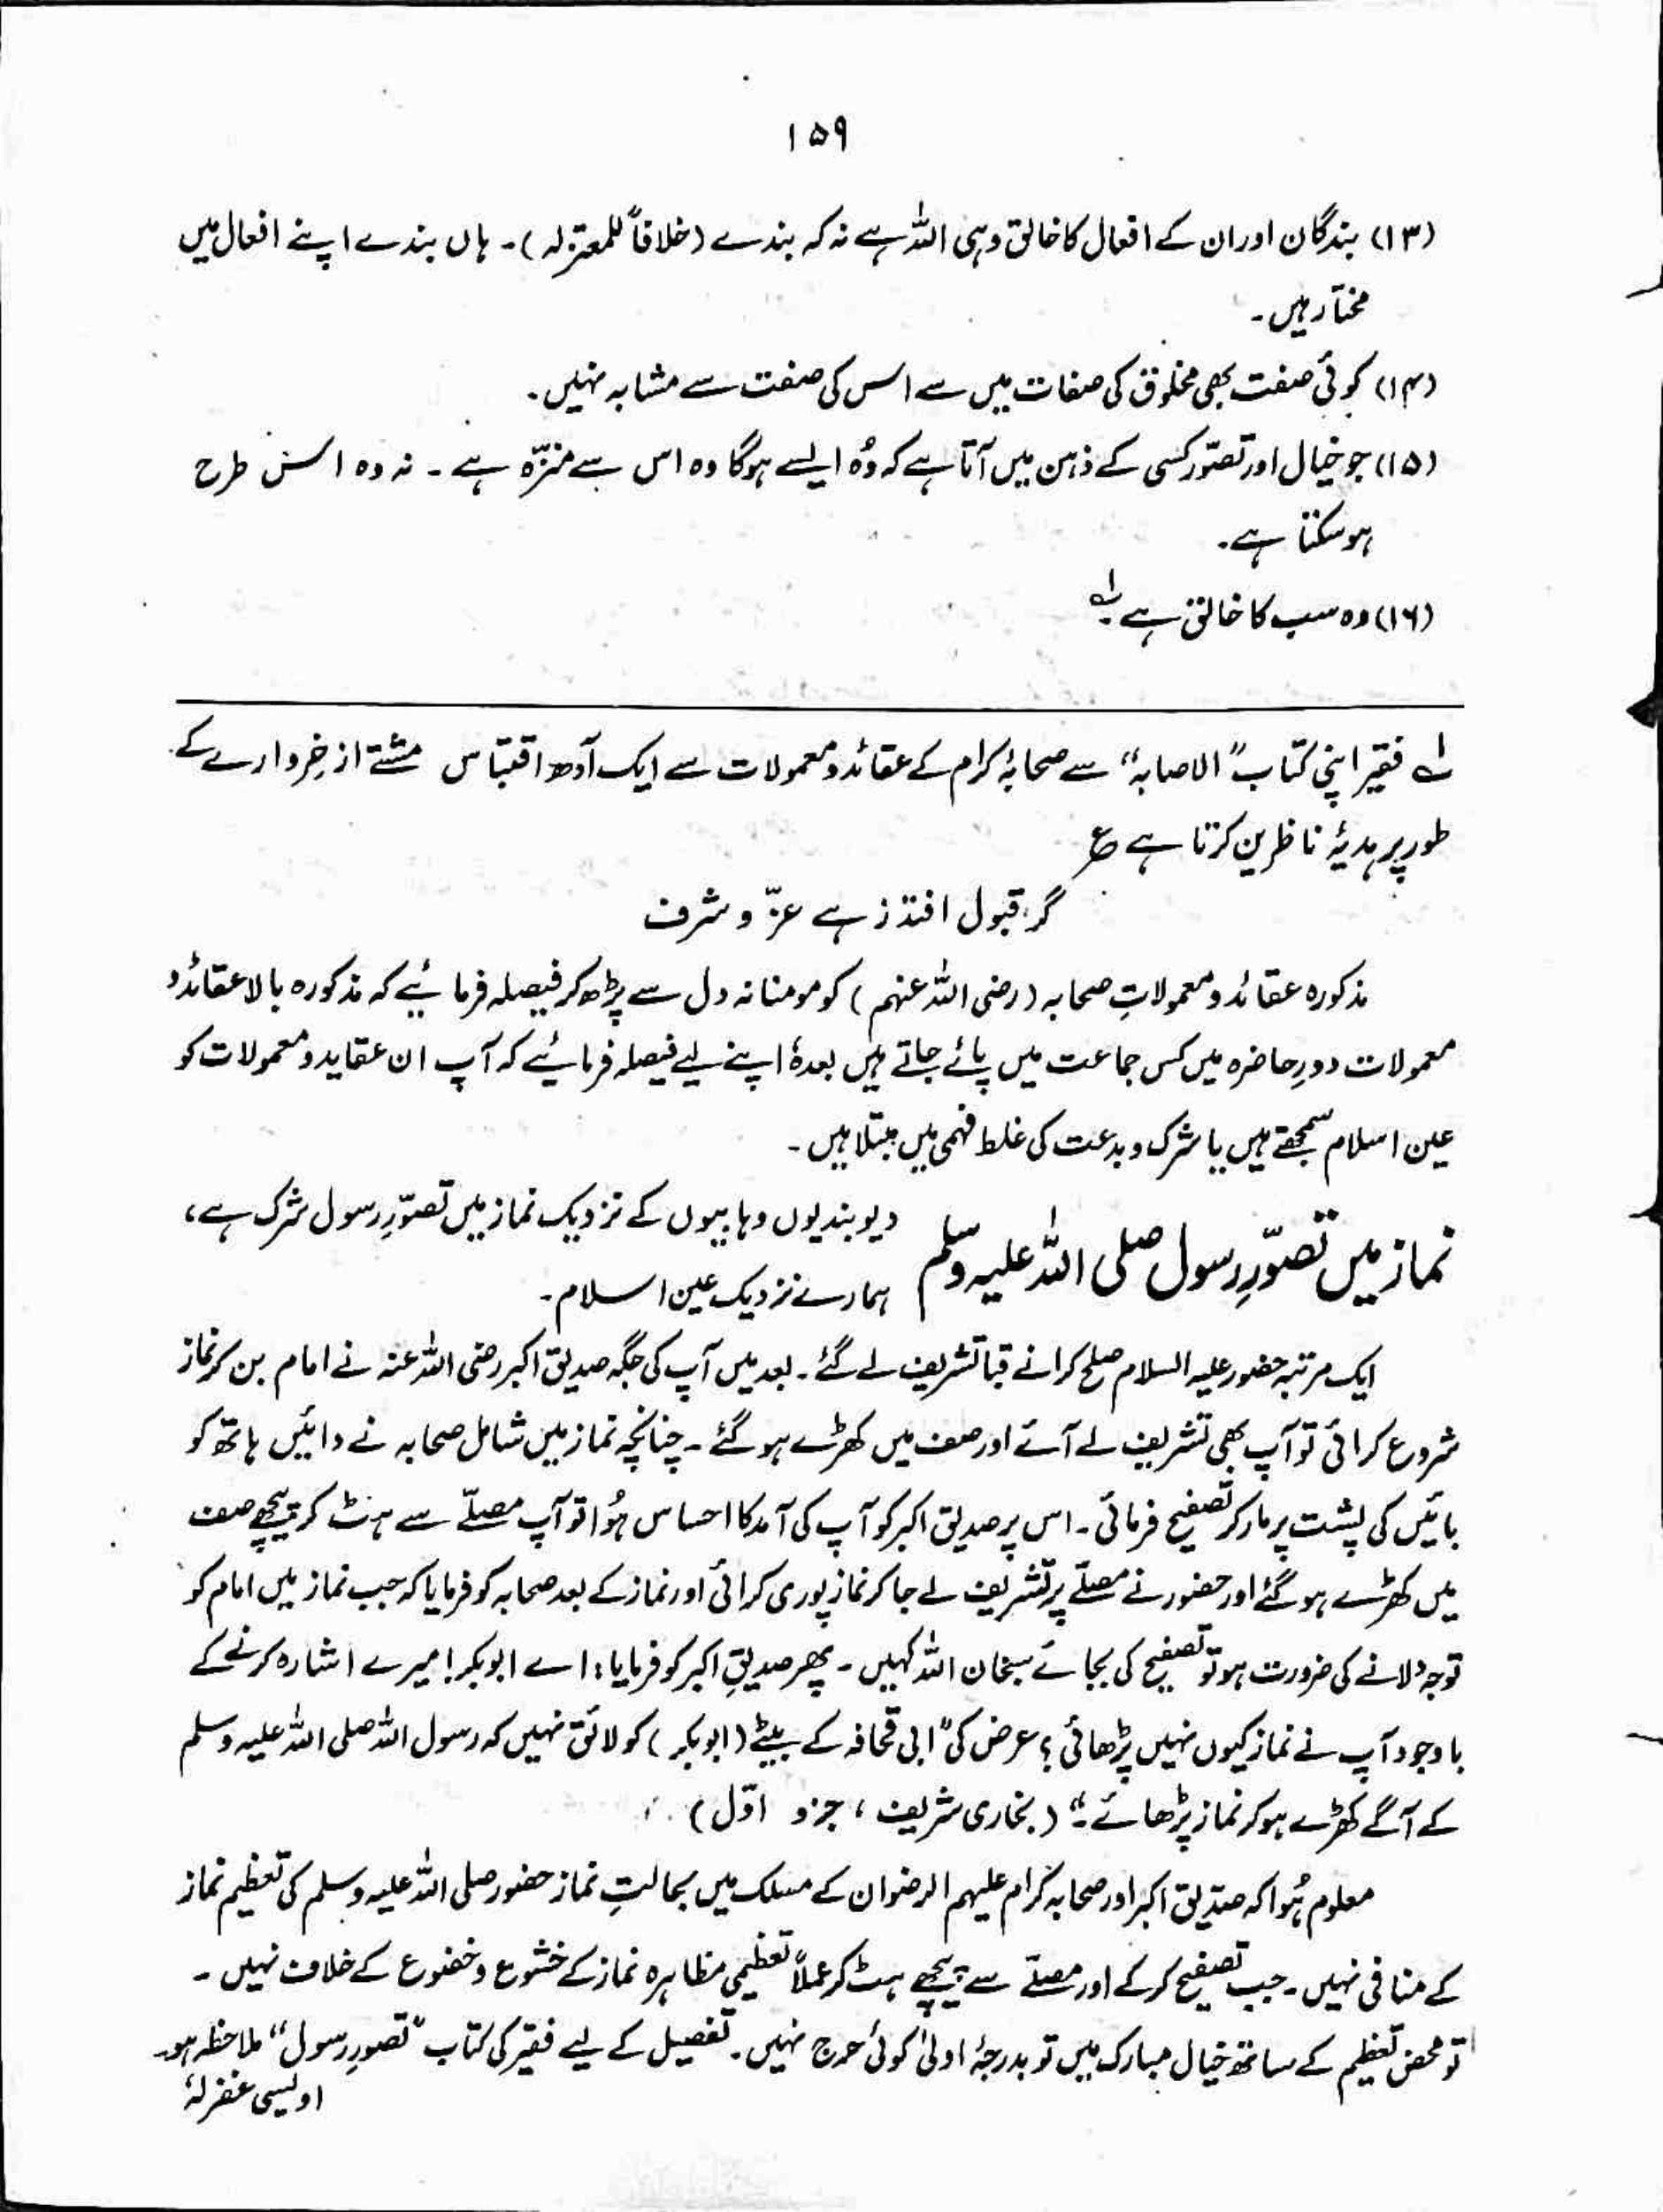 ۱۵۹
(۱۳) بندگان اور ان کے افعال کا خالق وہی اللہ ہے نہ کہ بندے (خلافاً للمعتزلہ)۔ ہاں بندے اپنے افعال میں
مختار ہیں۔
(۱۴) کوئی صفت بھی مخلوق کی صفات میں سے اس کی صفت سے مشابہ نہیں۔
(۱۵) جو خیال اور تصوّر کسی کے ذہن میں آتا ہے کہ وُہ ایسے ہوگا وہ اس سے منزّہ ہے۔ نہ وہ اس طرح
ہو سکتا ہے۔
(۱۶) وہ سب کا خالق ہے۔ ؎۱
؎۱ فقیر اپنی کتاب "الاصابہ" سے صحابۂ کرام کے عقائد و معمولات سے ایک آدھ اقتباس مشتے از خِروارے کے
طور پر ہدیۂ ناظرین کرتا ہے ؏
گر قبول افتد زہے عزّ و شرف
مذکورہ عقائد و معمولاتِ صحابہ (رضی اللہ عنہم) کو مومنانہ دل سے پڑھ کر فیصلہ فرمائیے کہ مذکورہ بالا عقائد و
معمولات دورِ حاضرہ میں کس جماعت میں پائے جاتے ہیں بعدہٗ اپنے لیے فیصلہ فرمائیے کہ آپ ان عقاید و معمولات کو
عین اسلام سمجھتے ہیں یا شرک و بدعت کی غلط فہمی میں مبتلا ہیں۔
نماز میں تصوّرِ رسول صلی اللہ علیہ وسلم دیوبندیوں وہابیوں کے نزدیک نماز میں تصوّرِ رسول شرک ہے،
ہمارے نزدیک عین اسلام۔
ایک مرتبہ حضور علیہ السلام صلح کرانے قبا تشریف لے گئے۔ بعد میں آپ کی جگہ صدیق اکبر رضی اللہ عنہ نے امام بن کر نماز
شروع کرائی تو آپ بھی تشریف لے آئے اور صف میں کھڑے ہو گئے۔ چنانچہ نماز میں شامل صحابہ نے دائیں ہاتھ کو
بائیں کی پشت پر مار کر تصفیح فرمائی۔ اس پر صدیق اکبر کو آپ کی آمد کا احساس ہُوا تو آپ مصلّے سے ہٹ کر پیچھے صف
میں کھڑے ہو گئے اور حضور نے مصلّے پر تشریف لے جا کر نماز پوری کرائی اور نماز کے بعد صحابہ کو فرمایا کہ جب نماز میں امام کو
توجہ دلانے کی ضرورت ہو تو تصفیح کی بجائے سبحان اللہ کہیں۔ پھر صدیقِ اکبر کو فرمایا: اے ابوبکر! میرے اشارہ کرنے کے
باوجود آپ نے نماز کیوں نہیں پڑھائی؟ عرض کی "ابی قحافہ کے بیٹے (ابوبکر) کو لائق نہیں کہ رسول اللہ صلی اللہ علیہ وسلم
کے آگے کھڑے ہو کر نماز پڑھائے۔" (بخاری شریف، جزو اوّل)
معلوم ہُوا کہ صدّیق اکبر اور صحابہ کرام علیہم الرضوان کے مسلک میں بحالتِ نماز حضور صلی اللہ علیہ وسلم کی تعظیم نماز
کے منافی نہیں۔ جب تصفیح کر کے اور مصلّے سے پیچھے ہٹ کر عملاً تعظیمی مظاہرہ نماز کے خشوع و خضوع کے خلاف نہیں۔
تو محض تعظیم کے ساتھ خیال مبارک میں تو بدرجۂ اولیٰ کوئی حرج نہیں۔ تفصیل کے لیے فقیر کی کتاب "تصورِ رسول" ملاحظہ ہو۔
اویسی غفرلہٗ